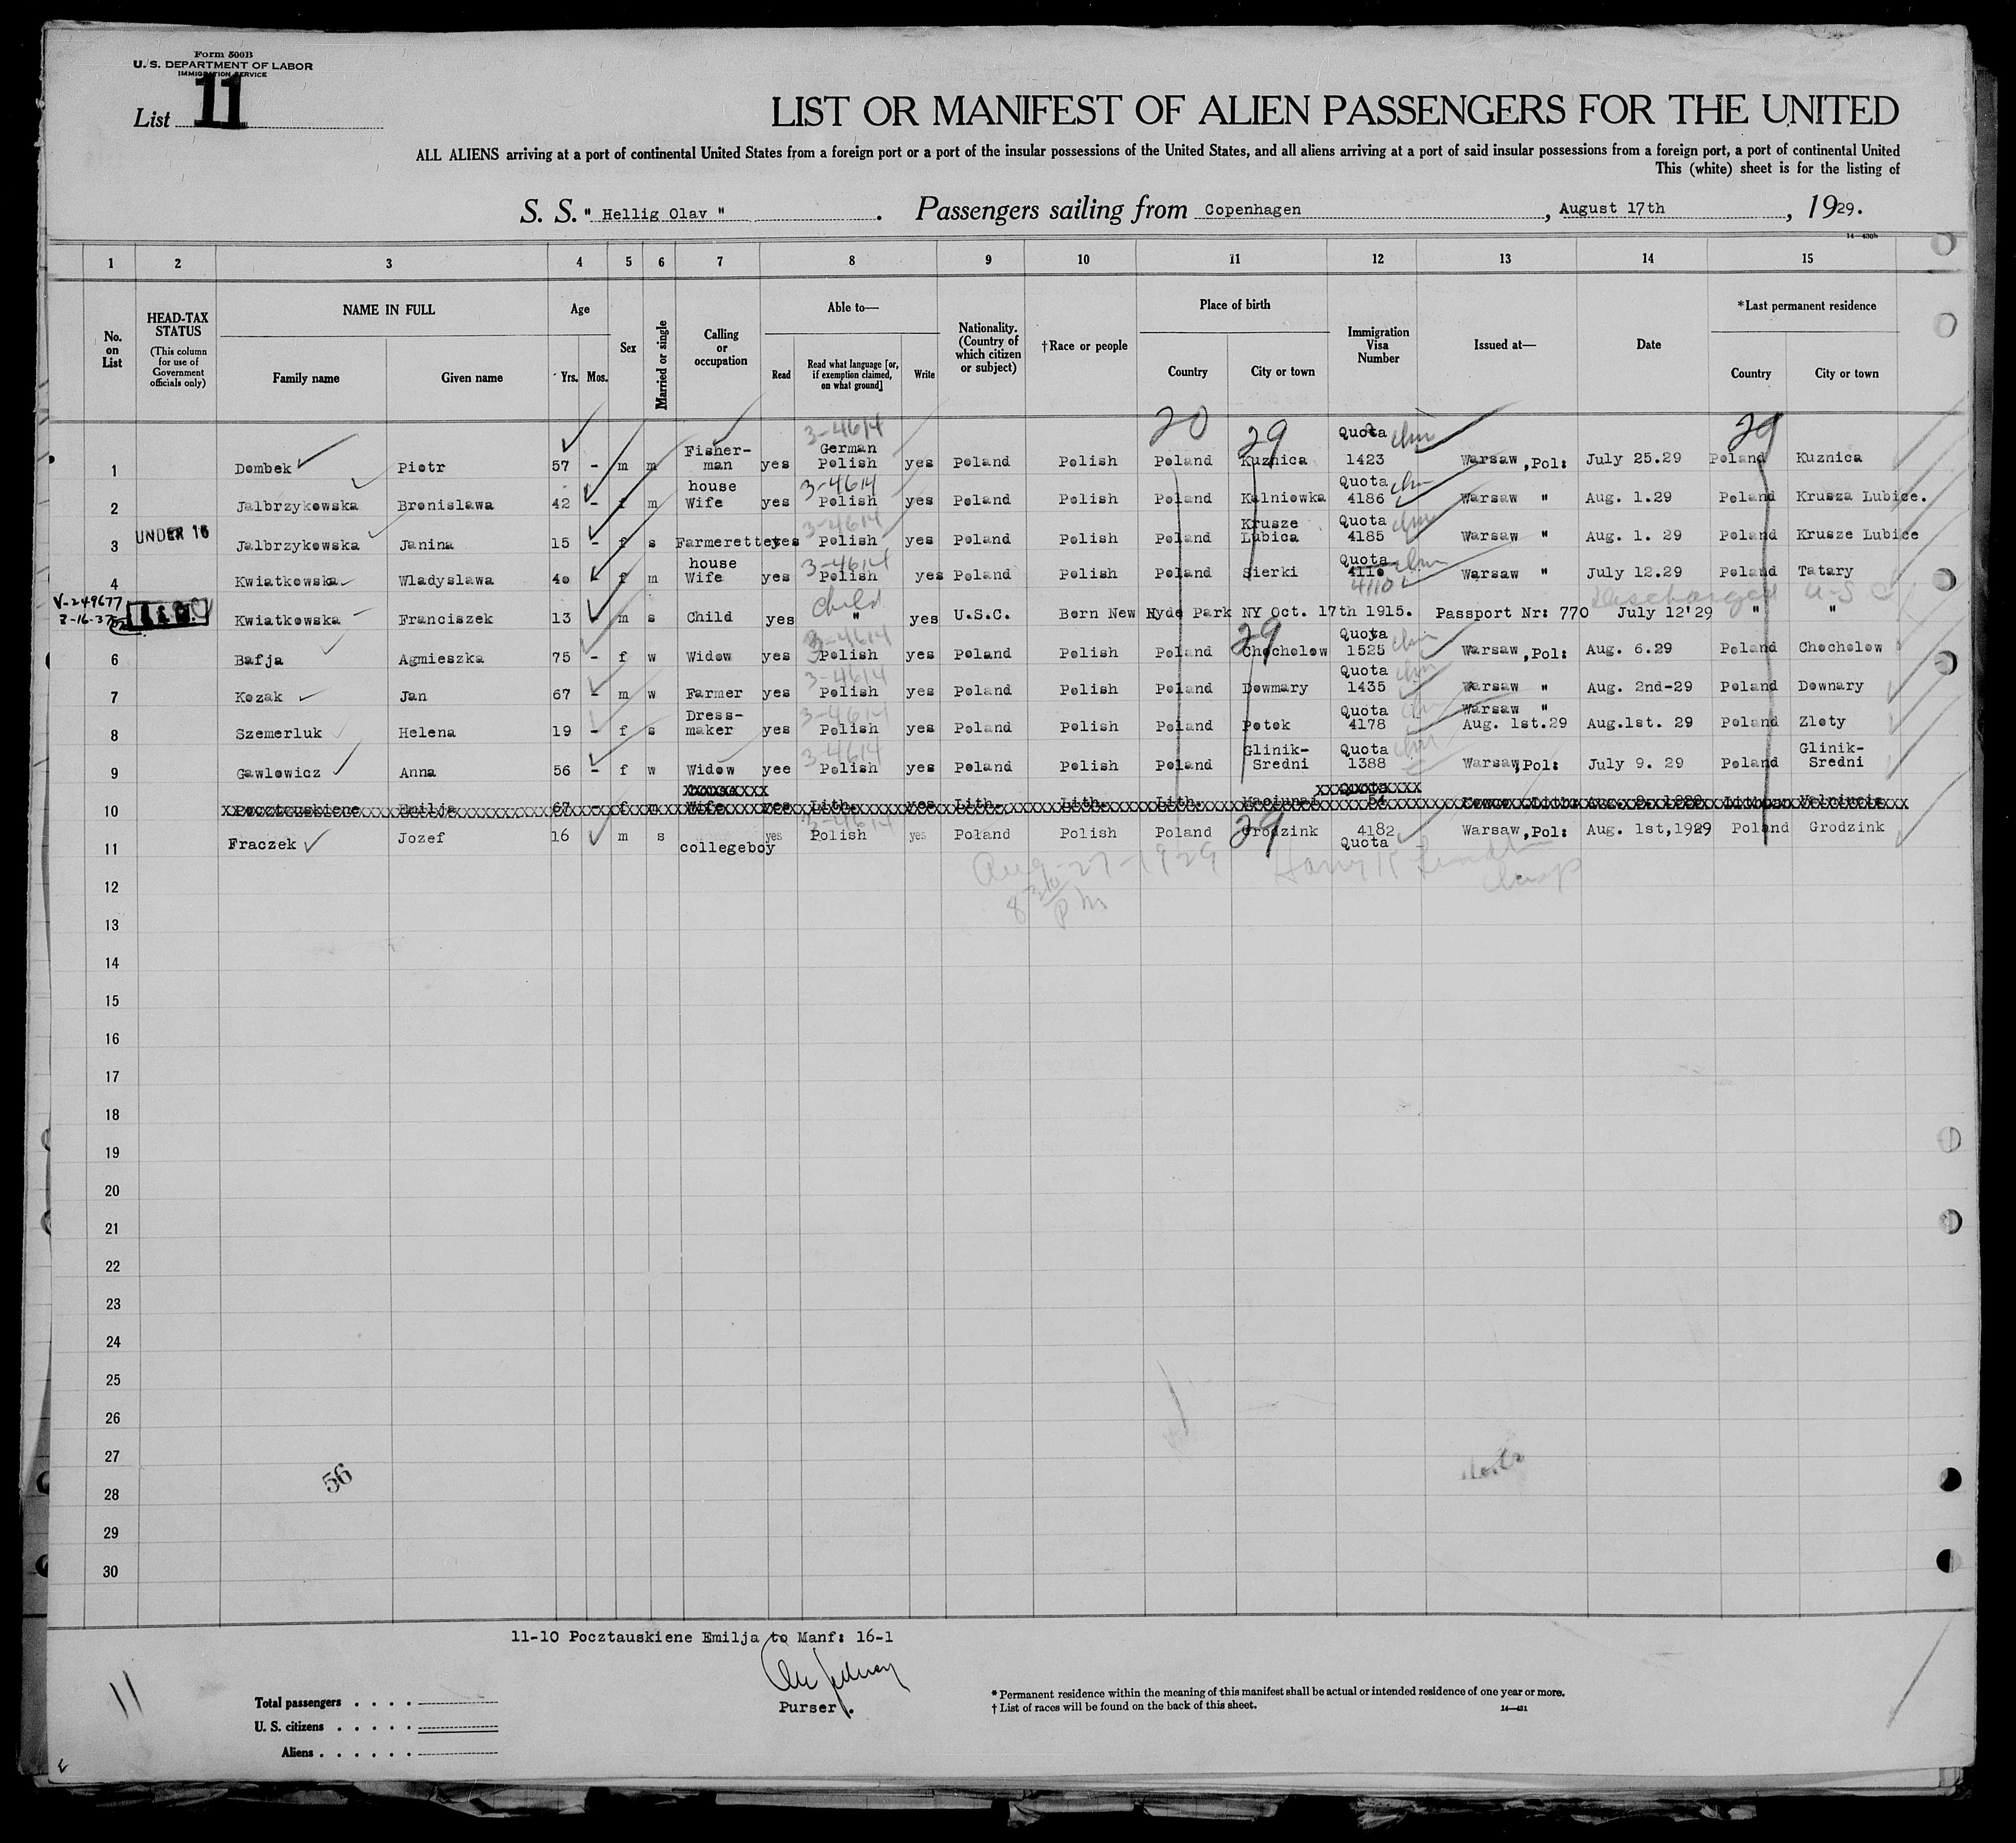 Form 500B
U. S. DEPARTMENT OF LABOR
IMMIGRATION SERVICE
List 11
LIST OR MANIFEST OF ALIEN PASSENGERS FOR THE UNITED
ALL ALIENS arriving at a port of continental United States from a foreign port or a port of the insular possessions of the United States, and all aliens arriving at a port of said insular possessions from a foreign port, a port of continental United
This (white) sheet is for the listing of
S. S. " Hellig Olav " . Passengers sailing from Copenhagen , August 17th , 1929.
14—430b
1 2 3 4 5 6 7 8 9 10 11 12 13 14 15
No. on List
HEAD-TAX STATUS (This column for use of Government officials only)
NAME IN FULL
Family name Given name
Age
Yrs. Mos.
Sex
Married or single
Calling or occupation
Able to—
Read Read what language [or, if exemption claimed, on what ground] Write
Nationality. (Country of which citizen or subject)
† Race or people
Place of birth
Country City or town
Immigration Visa Number
Issued at—
Date
*Last permanent residence
Country City or town
20 29 29
1 Dombek Piotr 57 - m m Fisher-man yes 3-4614 German Polish yes Poland Polish Poland Kuznica Quota 1423 Warsaw, Pol: July 25.29 Poland Kuznica
2 Jalbrzykowska Bronislawa 42 - f m house Wife yes 3-4614 Polish yes Poland Polish Poland Kalniowka Quota 4186 Warsaw " Aug. 1.29 Poland Krusza Lubice.
UNDER 16
3 Jalbrzykowska Janina 15 - f s Farmerette yes 3-4614 Polish yes Poland Polish Poland Krusze Lubica Quota 4185 Warsaw " Aug. 1. 29 Poland Krusze Lubice
4 Kwiatkowska Wladyslawa 40 - f m house Wife yes 3-4614 Polish yes Poland Polish Poland Sierki Quota 4110 4110 Warsaw " July 12.29 Poland Tatary
V-249677
3-16-37
Discharged U-S C
Kwiatkowska Franciszek 13 - m s Child yes Child " yes U.S.C. Born New Hyde Park NY Oct. 17th 1915. Passport Nr: 770 July 12'29 " "
6 Bafja Agmieszka 75 - f w Widow yes 3-4614 Polish yes Poland Polish Poland 29 Chocholow Quota 1525 Warsaw, Pol: Aug. 6.29 Poland Chocholow
7 Kozak Jan 67 - m w Farmer yes 3-4614 Polish yes Poland Polish Poland Dowmary Quota 1435 Warsaw " Aug. 2nd-29 Poland Downary
8 Szemerluk Helena 19 - f s Dress-maker yes 3-4614 Polish yes Poland Polish Poland Potok Quota 4178 Warsaw " Aug. 1st.29 Aug.1st. 29 Poland Zloty
9 Gawlowicz Anna 56 - f w Widow yee 3-4614 Polish yes Poland Polish Poland Glinik-Sredni Quota 1388 Warsaw, Pol: July 9. 29 Poland Glinik-Sredni
10 Pocztauskiene Emilja 67 - f m Wife yes Lith. yes Lith. Lith. Lith. Quota 54
11 Fraczek Jozef 16 m s collegeboy yes 3-4614 Polish yes Poland Polish Poland 29 Grodzink 4182 Quota Warsaw, Pol: Aug. 1st,1929 Poland Grodzink
Aug-27-1929
8 30 PM
12
13
14
15
16
17
18
19
20
21
22
23
24
25
26
27
28
29
30
56
11-10 Pocztauskiene Emilja to Manf: 16-1
Purser.
11
Total passengers . . . .
U. S. citizens . . . . .
Aliens . . . . . .
* Permanent residence within the meaning of this manifest shall be actual or intended residence of one year or more.
† List of races will be found on the back of this sheet.
14—431